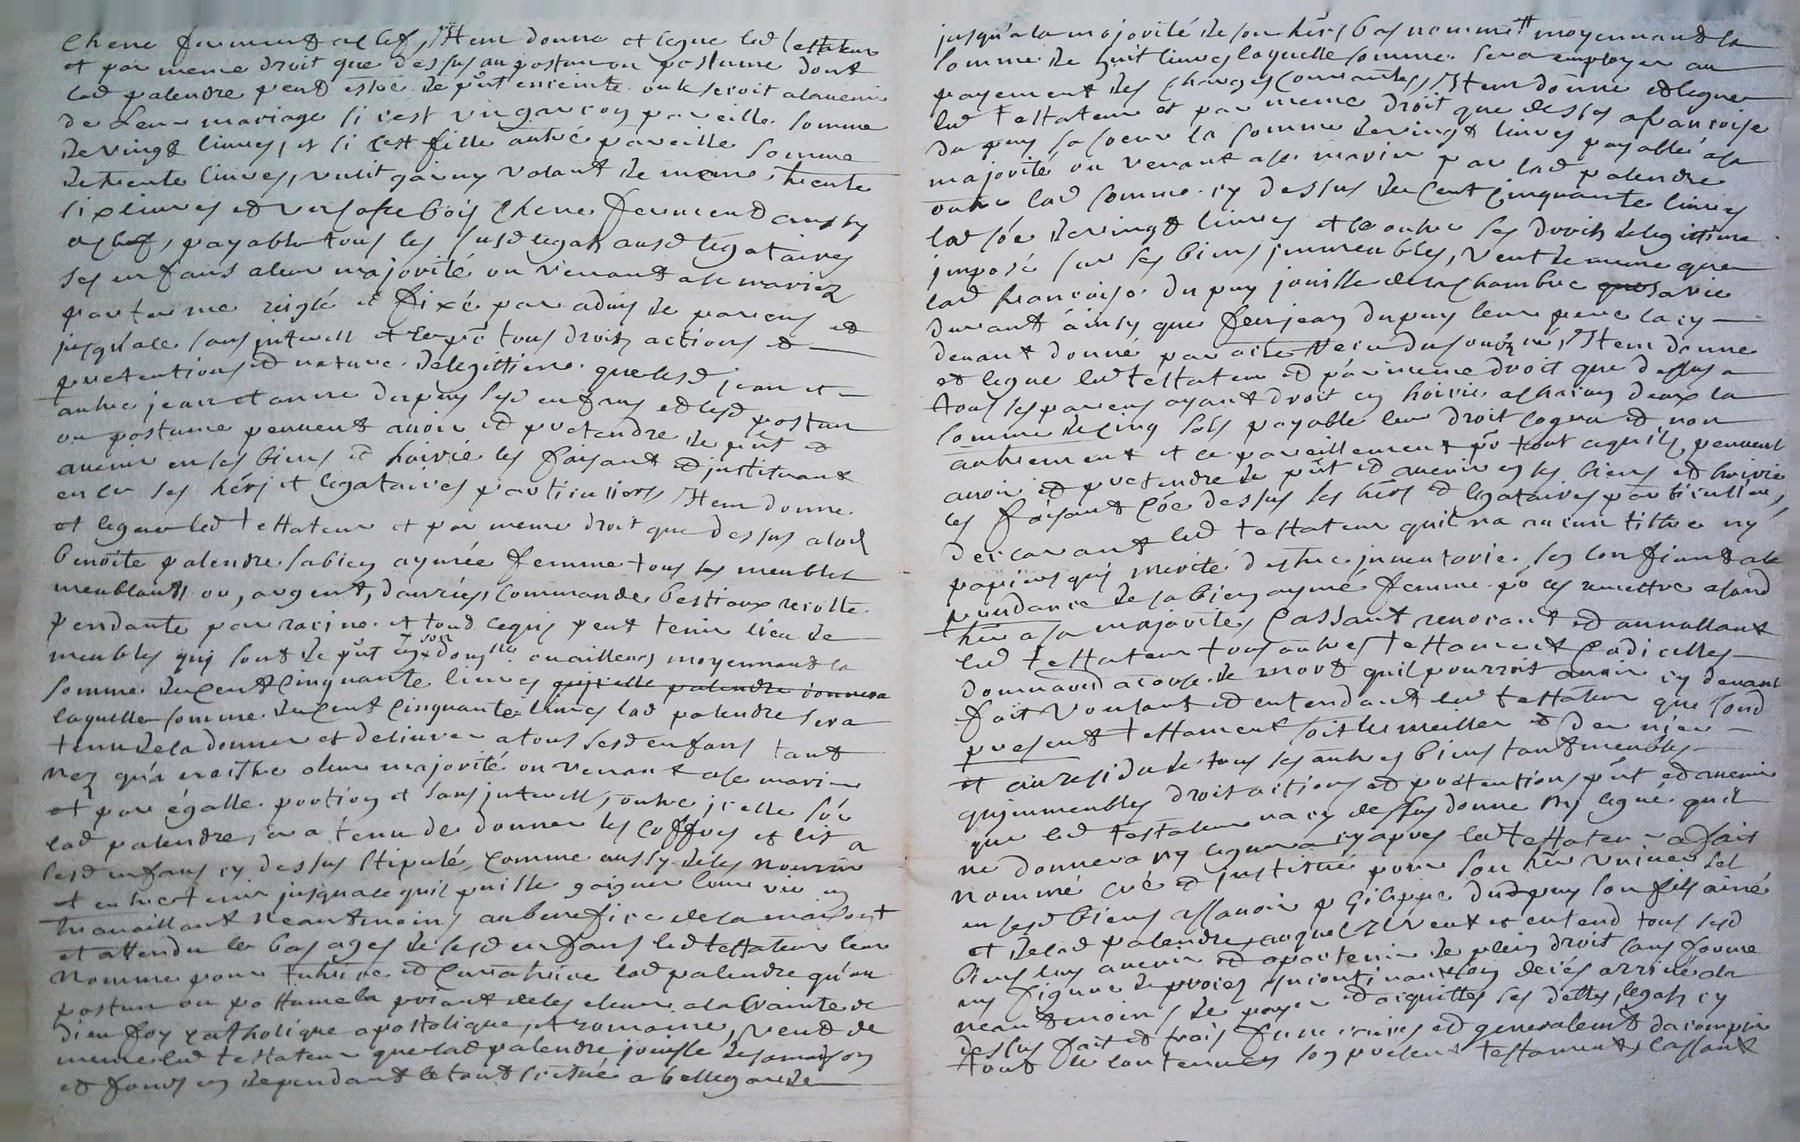 chene fermant a clef, Item donne et legue led testateur
et par meme droit que dessus au postum ou postume dont
lad palendre peut estre de pnt enceinte ou le seroit alavenir
de leur mariage si cest un garcon pareille somme
de vingt livres, et si cest fille autre pareille somme
de trente livres, un lit garny valant de meme trente
six livres et un cofre bois chene fermant aussy
a clef, payable tous les susd legats ausd legataires
ses enfans a leur majorité ou venant a se marier
par terme reiglé et fixé par advis de parens et
jusqua ce sans interest et ce po tous droits actions et
pretentions et nature de legitime que lesd jean et
autre jean et anne dupuy sesd enfans et lesd postum
ou postume peuvent avoir et pretendre de pnt et
avenir en ses biens et hoirie les faisant et instituant
en ce ses hers et legataires particuliers Item donne
et legue led testateur et par meme droit que dessus a lad
benoite palendre sa bien aymée femme tous ses meubles
meublants or, argent, danrées, commande bestiaux recolte
pendante par racine et tout ce quy peut tenir lieu de
meubles quy sont de pnt en son domlle ou ailleurs moyennant la
somme de cent cinquante livres quicelle palendre donnera
laquelle somme de cent cinquante livres lad palendre sera
tenu de la donner et delivrer a tous sesd enfans tant
nez qua naistre a leur majorité ou venant a se marier
et par egalle portion et sans interest, outre icelle soe
lad palendre, sera tenu de donner les coffres et lit a
sesd enfans cy dessus stipulé, comme aussy de les nourrir
et entretenir jusqua ce quil puisse gaigner leur vie en
travaillant neantmoins au benefice de la maison
et attendu le bas ages de sesd enfans led testateur leur
nomme pour tutrice et curatrice lad palendre qu'au
postum ou postume la priant de les elever a la crainte de
dieu foy catholique apostolique, et romaine, veut de
meme led testateur que lad palendre jouisse de sa maison
et fonds en dependant le tout situé a bellegarde
jusqu'a la majorité de son her bas nommé moyennant la
somme de huit livres laquelle somme sera employer au
payement des charges courantes, Item donne et legue
led testateur et par meme droit que dessus a francoise
dupuy sa soeur la somme de vingt livres payable a sa
majorité ou venant a se marier par lad palendre
outre lad somme cy dessus de cent cinquante livres
lad soe de vingt livres et ce outre ses droits de legitime
imposé sur ses biens immeubles, veut de meme que
lad francoise dupuy jouisse de la chambre sa vie
durant ainsy que feu jean dupuy leur pere la cy
devant donné par acte receu du soubzné, Item donne
et legue led testateur et par meme droit que dessus a
tous ses parens ayant droit en hoirie a chacun deux la
somme de cinq sols payable leur droit cognu et non
autrement et ce pareillement po tout ce quils peuvent
avoir et pretendre de pnt et avenir en ses biens et hoirie
les faisant coe dessus ses hers et legataires particuliers,
declarant led testateur quil na aucun titre ny
papiers quy merite destre inventorié, sen confiant a la
prudance de sa bien aymé femme po les remettre a sond
her a sa majorité, cassant revocant et annullant
led testateur tous autres testament codicilles
donnaon a cause de mort quil pourroit avoir cy devant
fait voulant et entendant led testateur que sond
present testament soit le meilleur et dernier
et au residu de tous ses autres biens tant meubles
quimmeubles droit actions et pretentions pnt et avenir
que led testateur na cy dessus donne ny legué quil
ne donnera ny leguera cy apres led testateur a fait
nommé créé et institué pour son her universel
en sesd biens assavoir philippe dupuy son fils ainé
et de lad palendre auquel il veut et entend tous sesd
biens luy avenir et apartenir de plein droit sans forme
ny figure de proces incontinant son deces arrivé a la
neantmoins de payer et acquitter ses dettes, legats cy
dessus fait et frais funeraires et generalement dacomplir
tout le contenu en son present testament, cassant